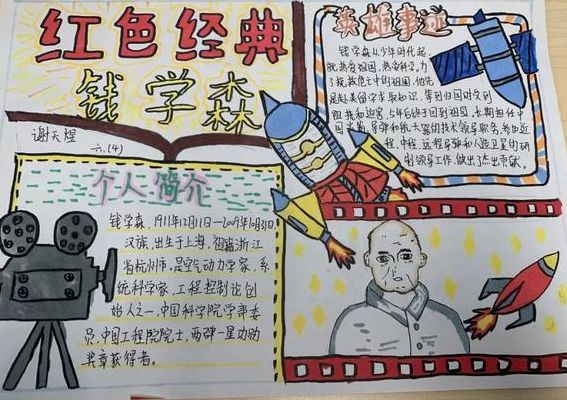 红色经典
钱学森
谢天煜
六.(4)
个人简介
钱学森,1911年12月11日—2009年10月31日
汉族,出生于上海,祖籍浙江
省杭州市,是空气动力学家,系
统科学家,工程控制论创
始人之一,中国科学院学部委
员,中国工程院院士,两弹一星功勋
奖章获得者。
英雄事迹
钱学森从少年时代起,
就热爱祖国,热爱科学,为
了拯救危亡中的祖国,他先
是赴美留学求取知识,等到归国时受到
阻挠和迫害,5年后终于回到祖国,长期担任中
国火箭、导弹和航天器的技术领导职务,参与近
程、中程、远程导弹和人造卫星的研
制领导工作,做出了杰出贡献。